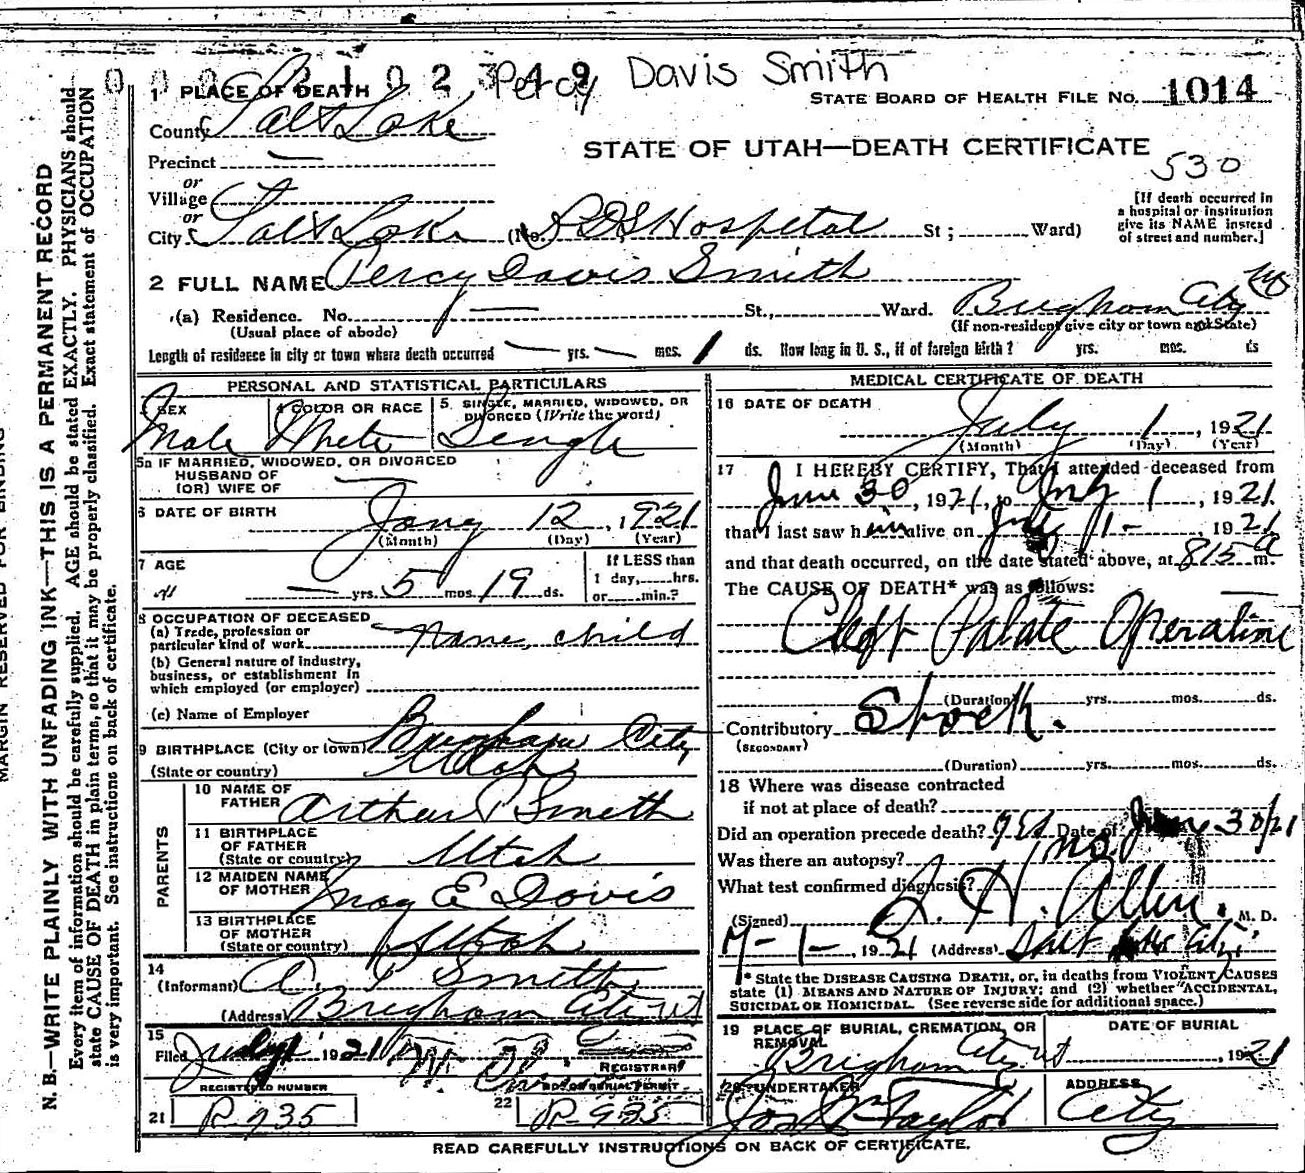 Percy Davis Smith
1 PLACE OF DEATH
STATE BOARD OF HEALTH FILE No. 1014
County Salt Lake
STATE OF UTAH—DEATH CERTIFICATE
530
Precinct —
or
Village
or
City Salt Lake (No. L D S Hospital St ; Ward)
[If death occurred in a hospital or institution give its NAME instead of street and number.]
2 FULL NAME Percy Davis Smith
(a) Residence. No. — St., Ward. Brigham City
(Usual place of abode) (If non-resident give city or town and State)
Length of residence in city or town where death occurred — yrs. — mos. 1 ds. How long in U. S., if of foreign birth? yrs. mos. ds
PERSONAL AND STATISTICAL PARTICULARS
3 SEX Male
4 COLOR OR RACE White
5. SINGLE, MARRIED, WIDOWED, OR DIVORCED (Write the word) Single
5a IF MARRIED, WIDOWED, OR DIVORCED
HUSBAND OF
(OR) WIFE OF —
6 DATE OF BIRTH Jany 12, 1921
(Month) (Day) (Year)
7 AGE
— yrs. 5 mos. 19 ds.
If LESS than
1 day, hrs.
or min.?
8 OCCUPATION OF DECEASED
(a) Trade, profession or
particular kind of work None, child
(b) General nature of industry,
business, or establishment in
which employed (or employer)
(c) Name of Employer
9 BIRTHPLACE (City or town) Brigham City
(State or country) Utah
PARENTS
10 NAME OF
FATHER Arthur P Smith
11 BIRTHPLACE
OF FATHER
(State or country) Utah
12 MAIDEN NAME
OF MOTHER May E Davis
13 BIRTHPLACE
OF MOTHER
(State or country) Utah
14
(Informant) A. P Smith
(Address) Brigham City Ut
15
Filed July 1 1921
REGISTRAR
REGISTERED NUMBER
21 R-935
NO. OF BURIAL PERMIT
22 R-935
MEDICAL CERTIFICATE OF DEATH
16 DATE OF DEATH
July 1, 1921
(Month) (Day) (Year)
17 I HEREBY CERTIFY, That I attended deceased from
June 30, 1921, to July 1, 1921
that I last saw him alive on July 1-, 1921
and that death occurred, on the date stated above, at 815 a m.
The CAUSE OF DEATH* was as follows:
Cleft Palate Operation
(Duration) yrs. mos. ds.
Contributory Shock.
(SECONDARY)
(Duration) yrs. mos. ds.
18 Where was disease contracted
if not at place of death?
Did an operation precede death? yes Date of June 30/21
Was there an autopsy? no
What test confirmed diagnosis?
(Signed) H. Allen. M. D.
7-1-, 1921 (Address) Salt Lake City.
* State the DISEASE CAUSING DEATH, or, in deaths from VIOLENT CAUSES
state (1) MEANS AND NATURE OF INJURY; and (2) whether ACCIDENTAL,
SUICIDAL OR HOMICIDAL. (See reverse side for additional space.)
19 PLACE OF BURIAL, CREMATION, OR
REMOVAL
Brigham City Ut
DATE OF BURIAL
, 1921
20 UNDERTAKER
Jos Wm Taylor
ADDRESS
City
READ CAREFULLY INSTRUCTIONS ON BACK OF CERTIFICATE.
MARGIN RESERVED FOR BINDING
N. B.—WRITE PLAINLY WITH UNFADING INK—THIS IS A PERMANENT RECORD
Every item of information should be carefully supplied. AGE should be stated EXACTLY. PHYSICIANS should
state CAUSE OF DEATH in plain terms, so that it may be properly classified. Exact statement of OCCUPATION
is very important. See instructions on back of certificate.